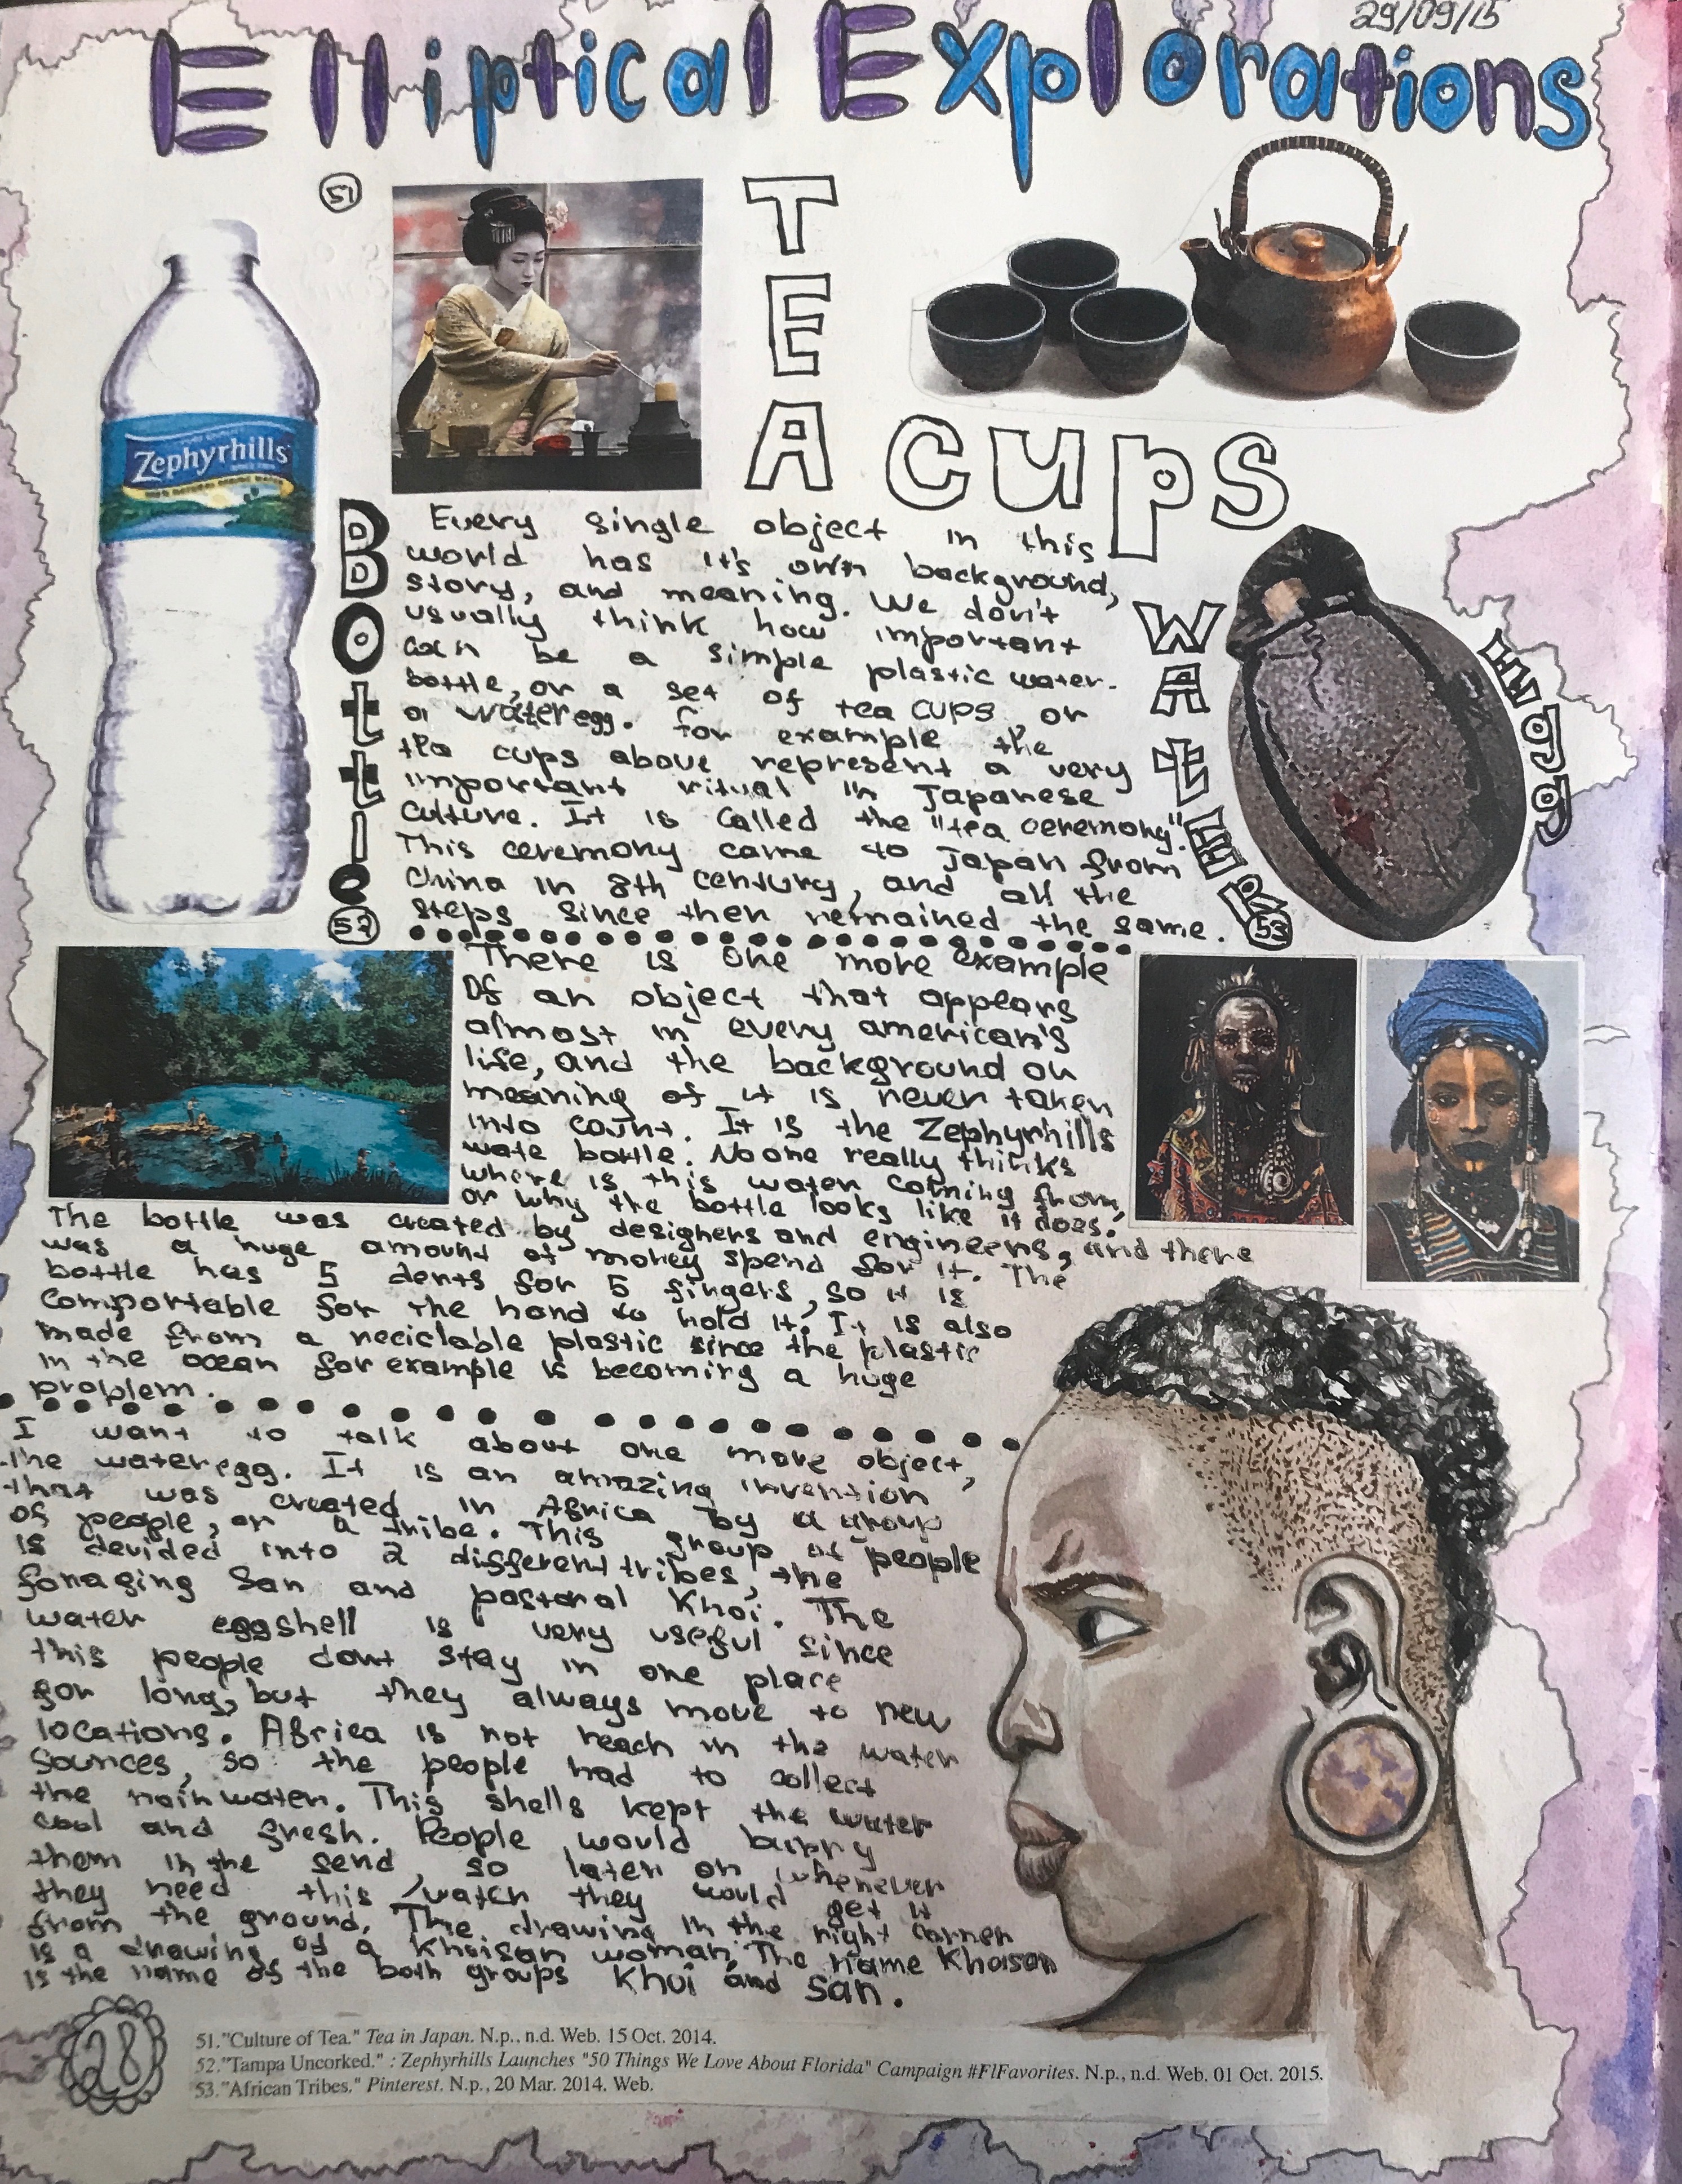 29/09/15
Elliptical Explorations
51
TEA
cups
Zephyrhills
BOttle
52
WAtER
Egg
53
Every single object in this
world has it's own background,
story, and meaning. We don't
usually think how important
can be a simple plastic water.
bottle, or a set of tea cups, or
or water egg. for example the
tea cups above represent a very
important ritual in Japanese
culture. It is called the "tea ceremony".
This ceremony came to Japan from
China in 8th century, and all the
steps since then remained the same.
There is one more example
Of an object that appears
almost in every american's
life, and the background on
meaning of it is never taken
into count. It is the Zephyrhills
wate bottle. No one really thinks
where is this water coming from,
or why the bottle looks like it does.
The bottle was created by designers and engineers, and there
was a huge amount of money spend for it. The
bottle has 5 dents for 5 fingers, so it is
comportable for the hand to hold it. It is also
made from a reciclable plastic since the plastic
in the ocean for example is becoming a huge
problem.
I want to talk about one more object,
the water egg. It is an amazing invention,
that was created in Africa by a group
of people, or a tribe. This group of people
is devided into 2 different tribes, the
foraging San and pastoral Khoi. The
water eggshell is very useful since
this people dont stay in one place
for long, but they always move to new
locations. Africa is not reach in the water
sources, so the people had to collect
the rain water. This shells kept the water
cool and fresh. People would burry
them in the send, so later on whenever
they need this water they would get it
from the ground. The drawing in the right corner
is a drawing of a Khoisan woman. The name Khoisan
is the name of the both groups Khoi and San.
28
51."Culture of Tea." Tea in Japan. N.p., n.d. Web. 15 Oct. 2014.
52."Tampa Uncorked." : Zephyrhills Launches "50 Things We Love About Florida" Campaign #FlFavorites. N.p., n.d. Web. 01 Oct. 2015.
53."African Tribes." Pinterest. N.p., 20 Mar. 2014. Web.